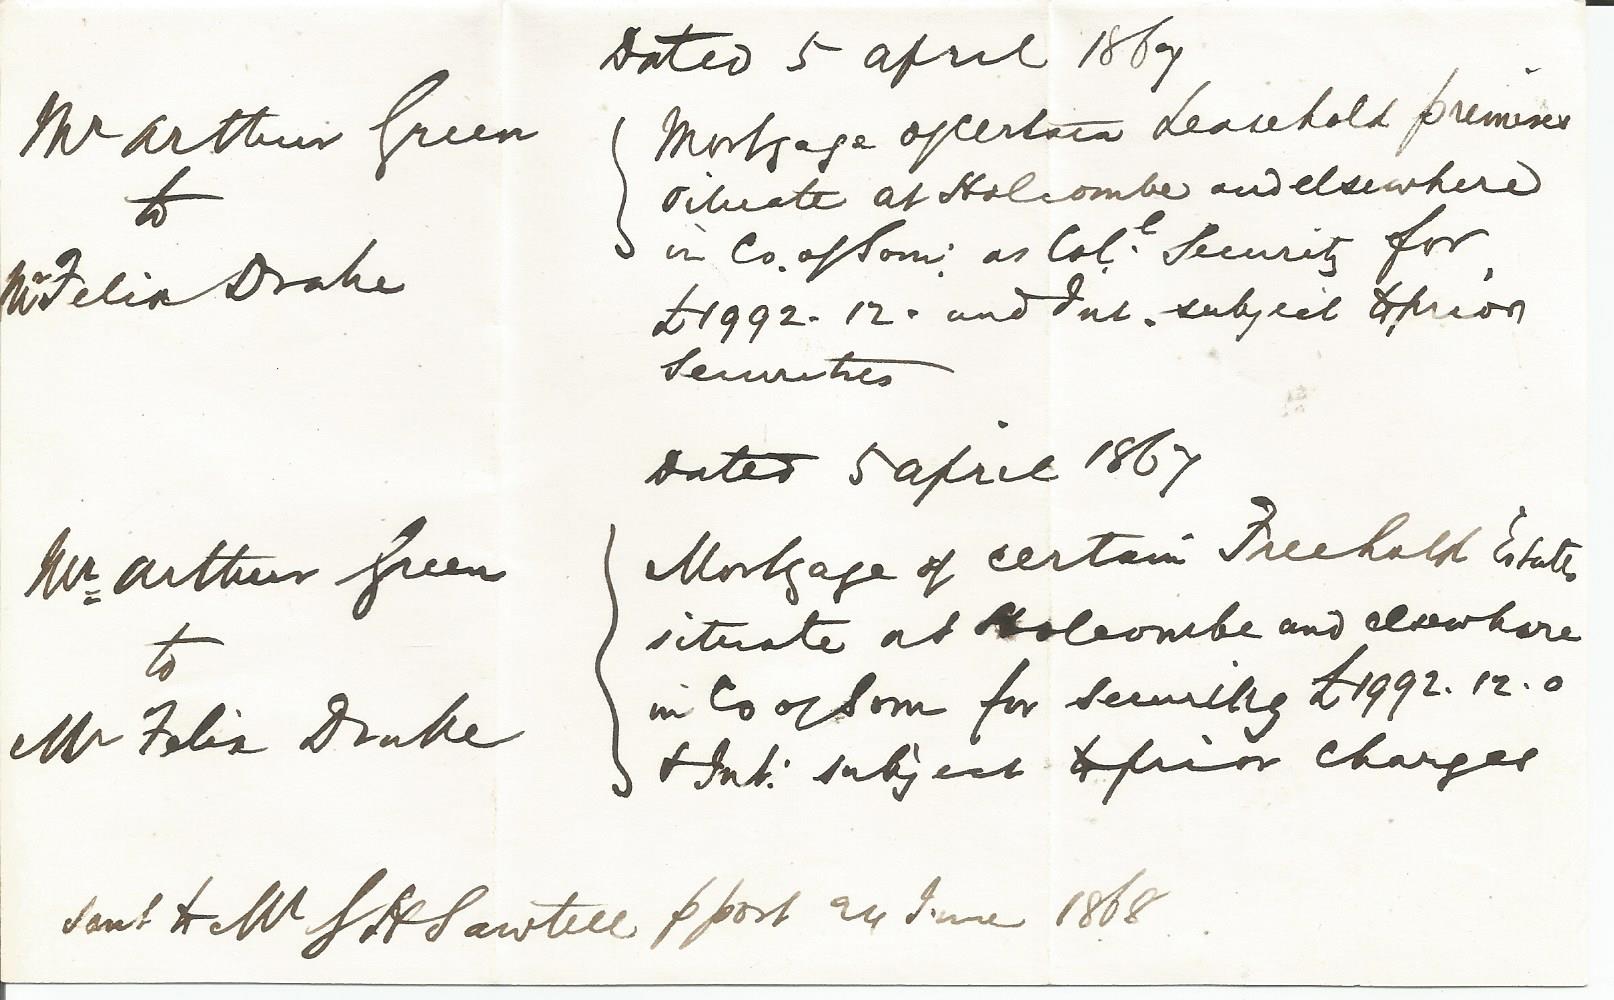 Dated 5 April 1867
Mr Arthur Green
to
Mr Felix Drake
Mortgage of certain Leasehold premises
situate at Holcombe and elsewhere
in Co. of Som: as Col:l Security for
£1992. 12. and Int. subject to prior
Securities
Dated 5 April 1867
Mr Arthur Green
to
Mr Felix Drake
Mortgage of certain Freehold Estates
situate at Holcombe and elsewhere
in Co of Som for securing £1992. 12. 0
& Int: subject to prior charges
Sent to Mr H Sawtell p post 24 June 1868